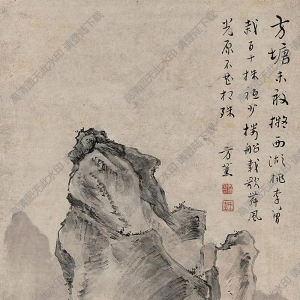 方塘未敢擬西湖桃李曾
栽百十株祗少樓船載歌舞風
光原不甚相殊
方薰